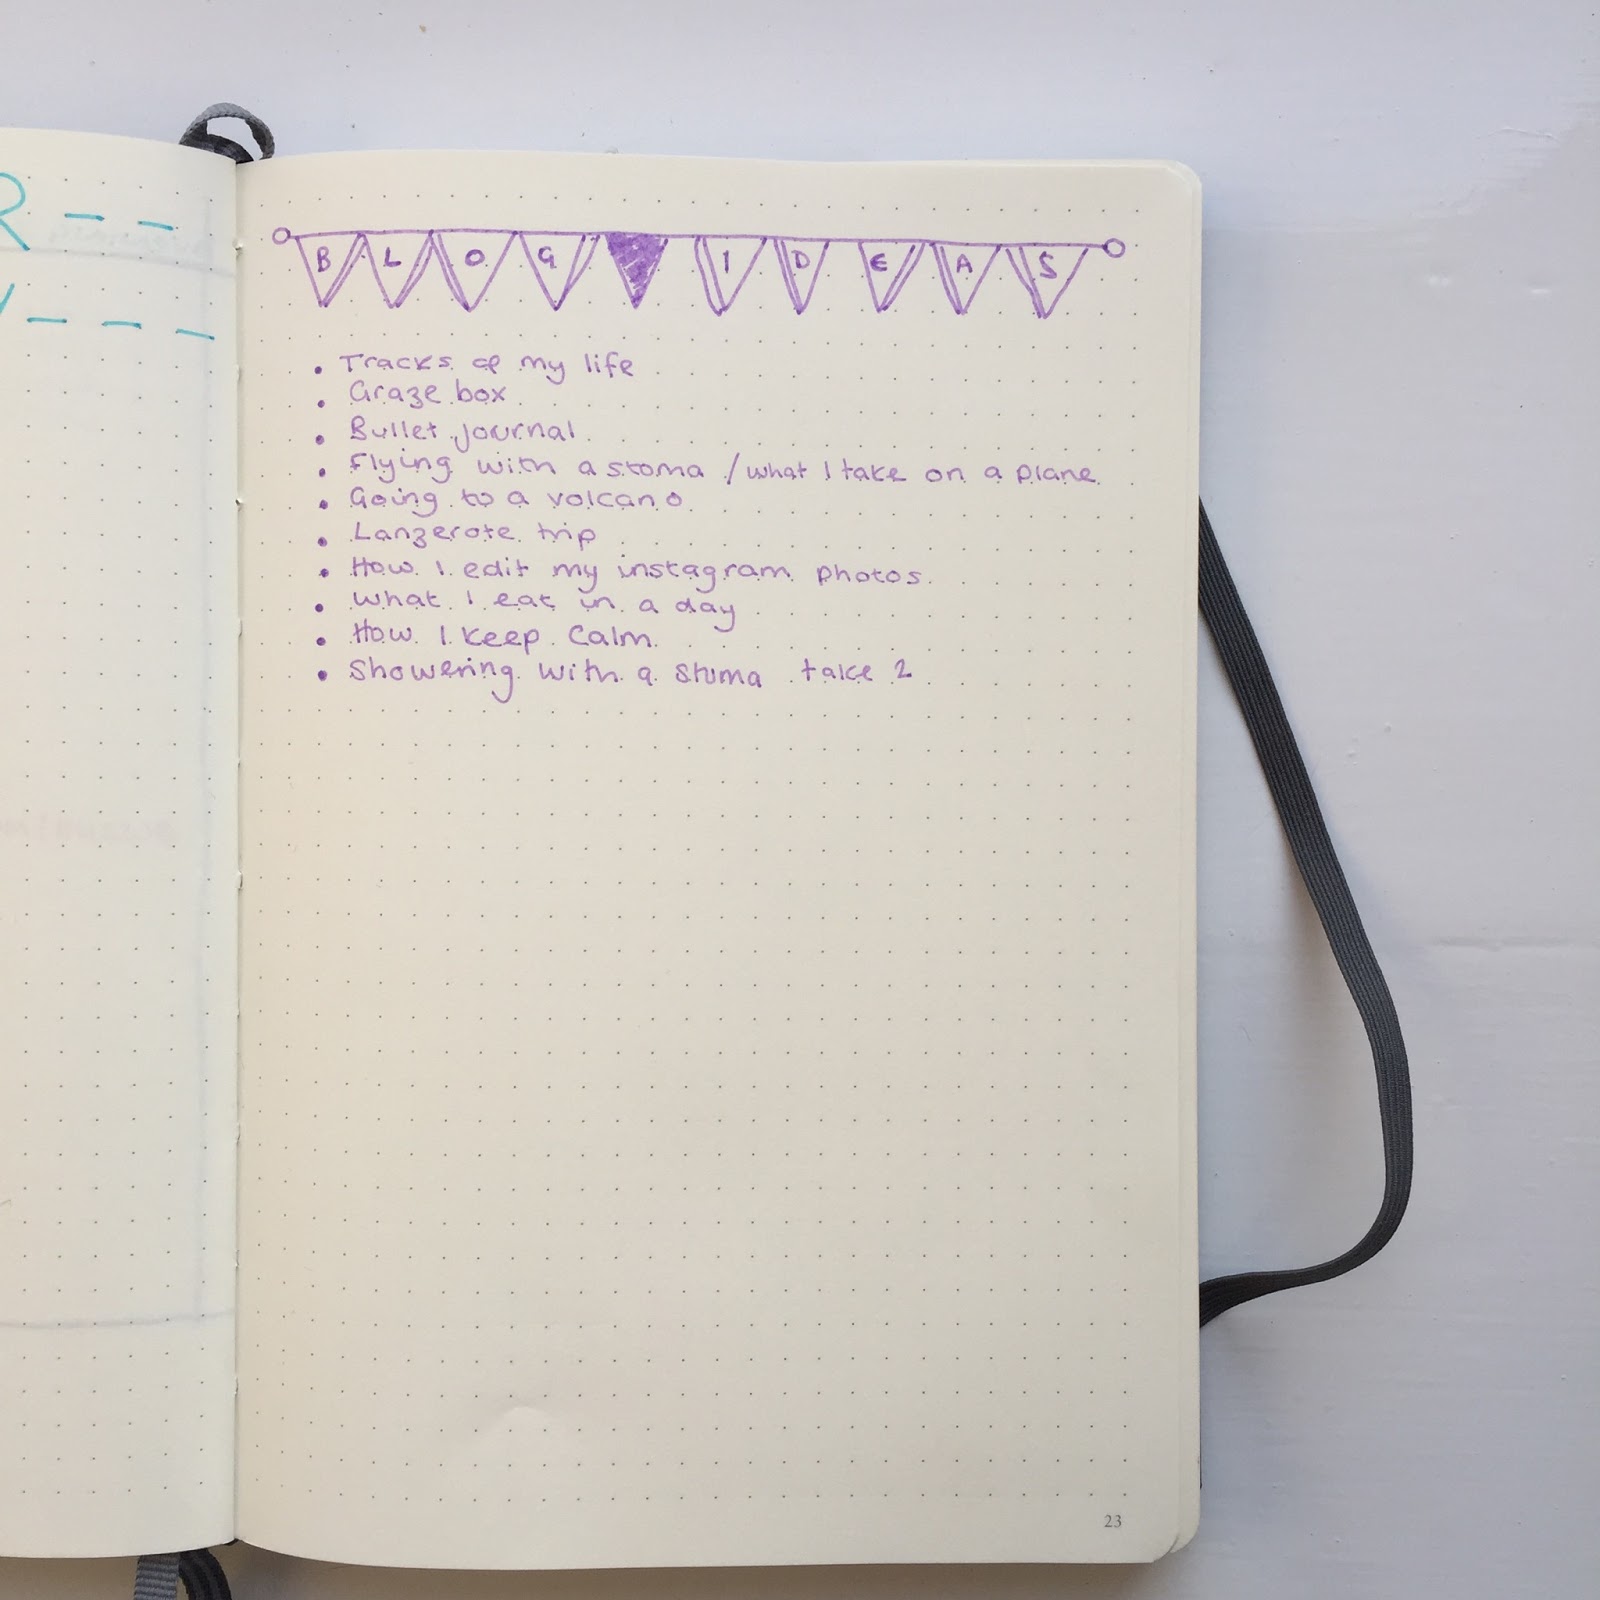 R - -
- - -
BLOG IDEAS
• Tracks of my life
• Graze box
• Bullet journal
• Flying with a stoma / what I take on a plane
• Going to a volcano
• Lanzerote trip
• How I edit my instagram photos.
• What I eat in a day
• How I keep Calm.
• Showering with a stoma take 2
23